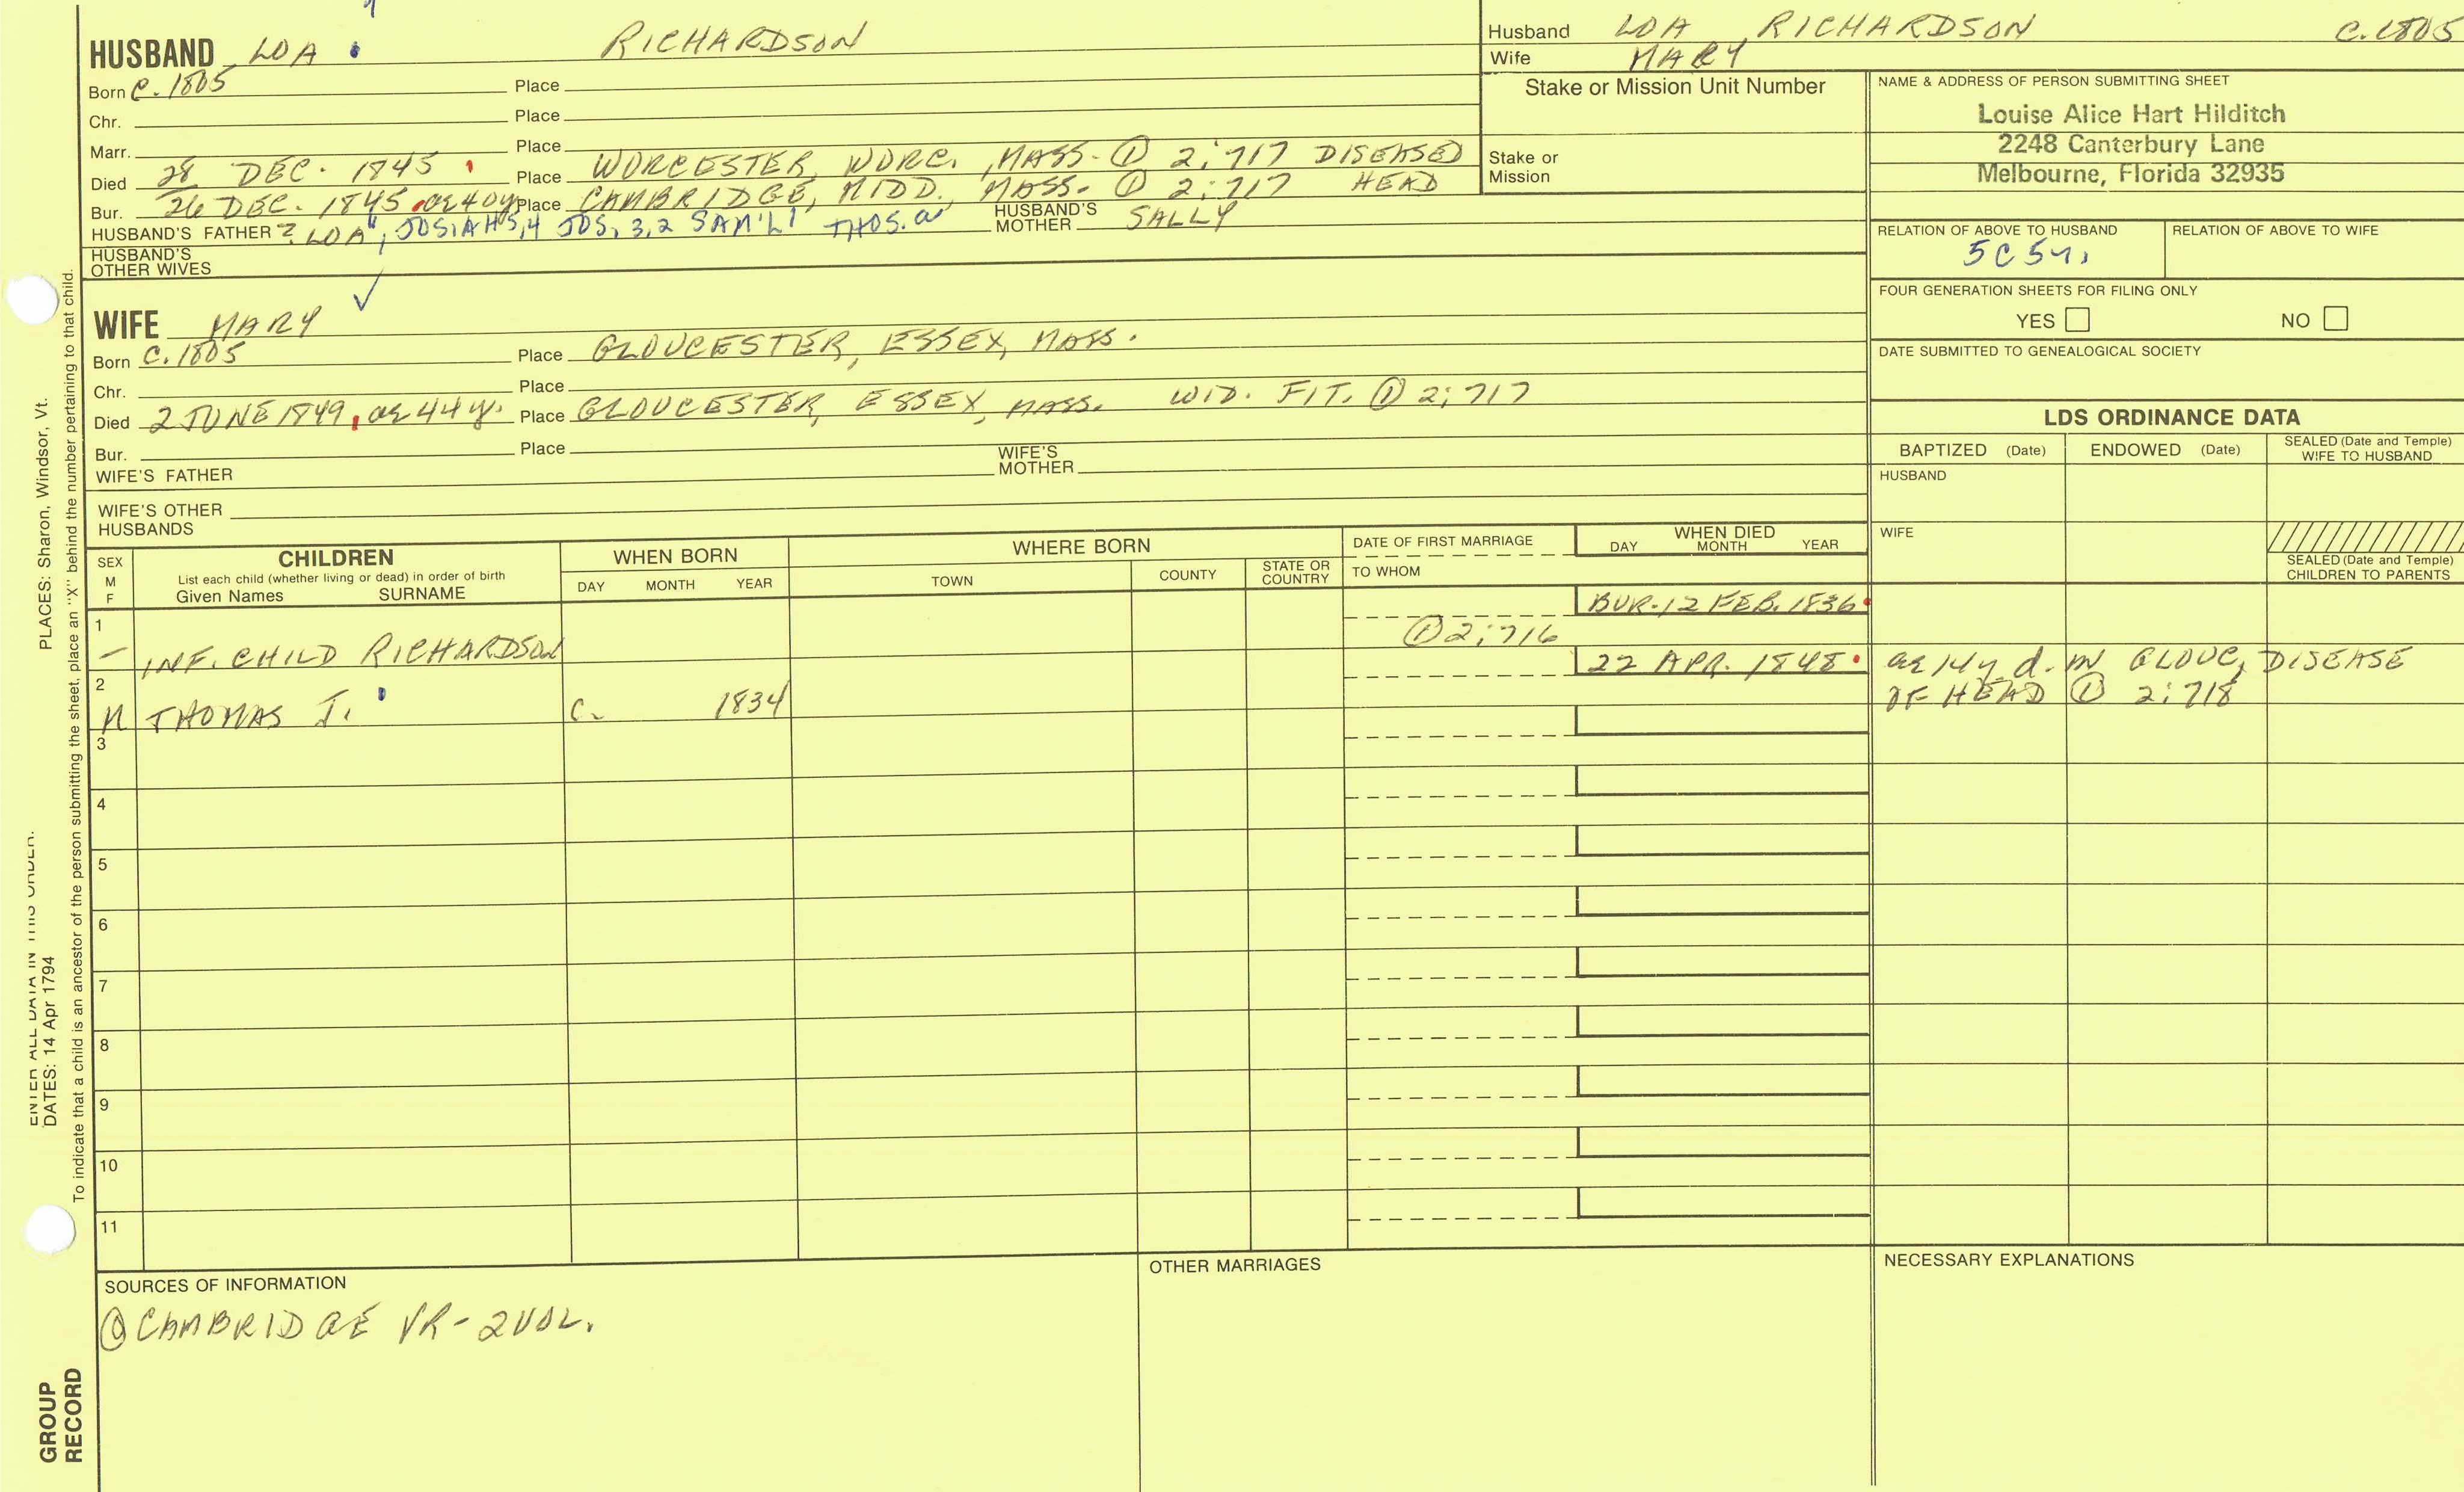 HUSBAND LOA RICHARDSON
Born C. 1805 Place
Chr. Place
Marr. Place
Died 28 DEC. 1845 Place WORCESTER, WORC., MASS. ① 2:717 DISEASED
Bur. 26 DEC. 1845, ae 40y Place CAMBRIDGE, MIDD., MASS. ① 2:717 HEAD
HUSBAND'S FATHER ? LOA, JOSIAH 5,4 JOS. 3,2 SAM'L 1 THOS. a HUSBAND'S MOTHER SALLY
HUSBAND'S OTHER WIVES
WIFE MARY
Born C. 1805 Place GLOUCESTER, ESSEX, MASS.
Chr. Place
Died 2 JUNE 1849, ae 44 y. Place GLOUCESTER, ESSEX, MASS. WID. FIT. ① 2:717
Bur. Place
WIFE'S FATHER WIFE'S MOTHER
WIFE'S OTHER HUSBANDS
Husband LOA RICHARDSON C. 1805
Wife MARY
Stake or Mission Unit Number
Stake or Mission
NAME & ADDRESS OF PERSON SUBMITTING SHEET
Louise Alice Hart Hilditch
2248 Canterbury Lane
Melbourne, Florida 32935
RELATION OF ABOVE TO HUSBAND RELATION OF ABOVE TO WIFE
5C5r,
FOUR GENERATION SHEETS FOR FILING ONLY
YES NO
DATE SUBMITTED TO GENEALOGICAL SOCIETY
LDS ORDINANCE DATA
BAPTIZED (Date) ENDOWED (Date) SEALED (Date and Temple) WIFE TO HUSBAND
HUSBAND
WIFE
SEALED (Date and Temple)
CHILDREN TO PARENTS
SEX M F CHILDREN WHEN BORN WHERE BORN DATE OF FIRST MARRIAGE WHEN DIED
List each child (whether living or dead) in order of birth
Given Names SURNAME DAY MONTH YEAR TOWN COUNTY STATE OR COUNTRY TO WHOM DAY MONTH YEAR
1 BUR. 12 FEB. 1836
– INF. CHILD RICHARDSON ① 2:716
2 22 APR. 1848 ae 14y. d. in GLOUC, DISEASE
M THOMAS J. C. 1834 OF HEAD ① 2:718
3
4
5
6
7
8
9
10
11
SOURCES OF INFORMATION
① CAMBRIDGE VR - 2 VOL.
OTHER MARRIAGES
NECESSARY EXPLANATIONS
ENTER ALL DATA IN THIS ORDER:
DATES: 14 Apr 1794 PLACES: Sharon, Windsor, Vt.
To indicate that a child is an ancestor of the person submitting the sheet, place an "X" behind the number pertaining to that child.
GROUP
RECORD